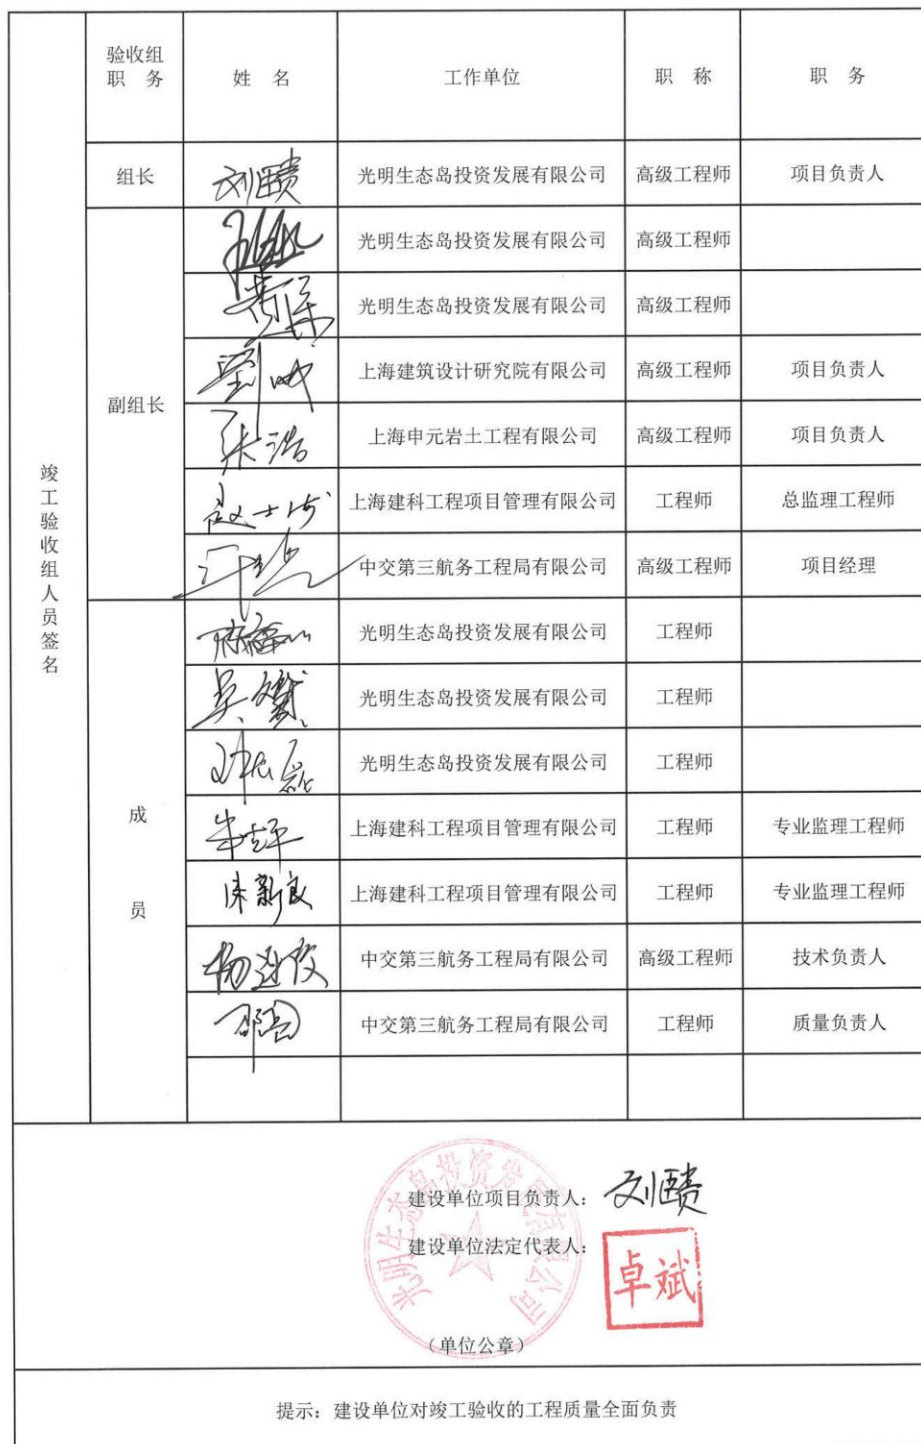 验收组
职 务
姓 名
工作单位
职 称
职 务
竣工验收组人员签名
组长
光明生态岛投资发展有限公司
高级工程师
项目负责人
副组长
光明生态岛投资发展有限公司
高级工程师
光明生态岛投资发展有限公司
高级工程师
上海建筑设计研究院有限公司
高级工程师
项目负责人
张浩
上海申元岩土工程有限公司
高级工程师
项目负责人
上海建科工程项目管理有限公司
工程师
总监理工程师
中交第三航务工程局有限公司
高级工程师
项目经理
成员
光明生态岛投资发展有限公司
工程师
光明生态岛投资发展有限公司
工程师
光明生态岛投资发展有限公司
工程师
上海建科工程项目管理有限公司
工程师
专业监理工程师
陈新良
上海建科工程项目管理有限公司
工程师
专业监理工程师
中交第三航务工程局有限公司
高级工程师
技术负责人
中交第三航务工程局有限公司
工程师
质量负责人
光明生态岛投资发展有限公司
建设单位项目负责人：
建设单位法定代表人：
卓斌
（单位公章）
提示：建设单位对竣工验收的工程质量全面负责